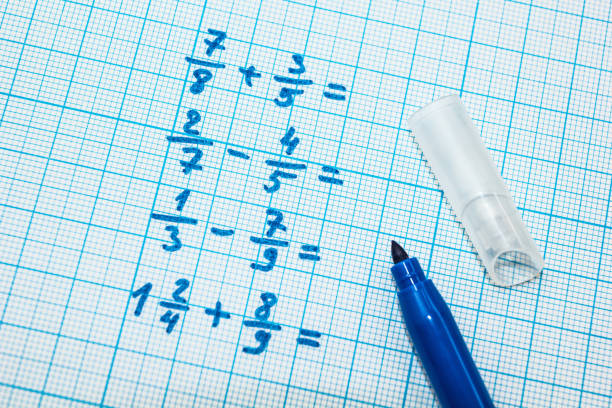 7/8 + 3/5 =
2/7 - 4/5 =
1/3 - 7/9 =
1 2/4 + 8/9 =